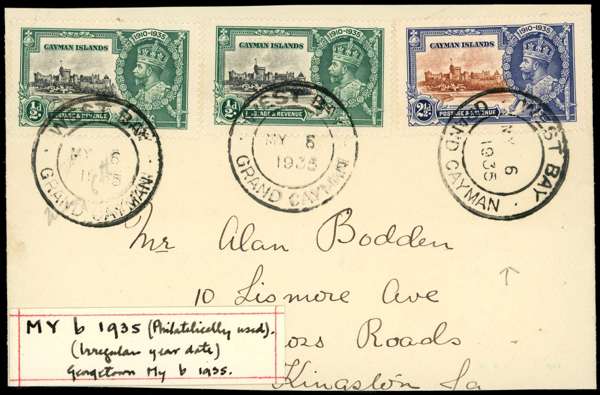 1910-1935 1910-1935 1910-1935
CAYMAN ISLANDS CAYMAN ISLANDS CAYMAN ISLANDS
½d. POSTAGE & REVENUE ½d. POSTAGE & REVENUE 2½d. POSTAGE & REVENUE
WEST BAY
MY 6
GRAND CAYMAN
WEST BA
MY 6
1935
GRAND CAYMAN
WEST BAY
MY 6
1935
ND CAYMAN
Mr Alan Bodden
10 Lismore Ave
oss Roads
Kingston Ja
MY 6 1935 (Philatelically used).
(Irregular year date)
Georgetown My 6 1935.